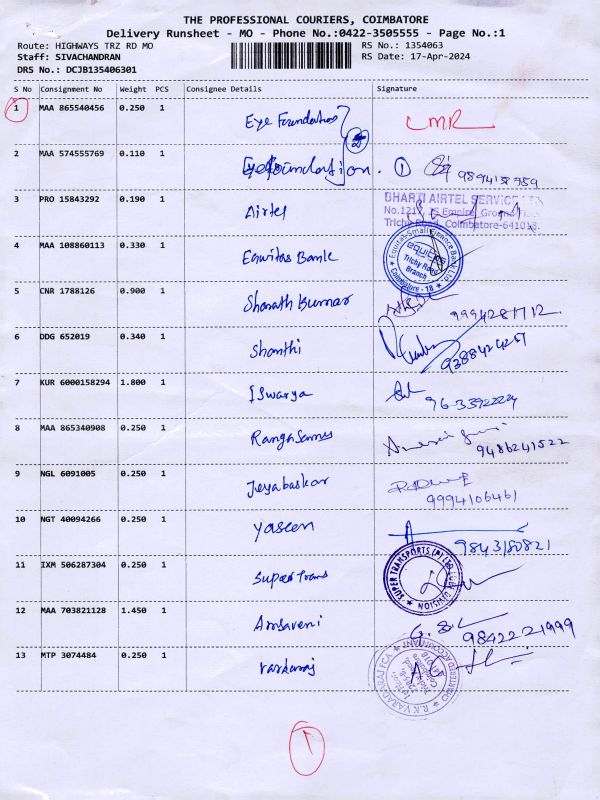 THE PROFESSIONAL COURIERS, COIMBATORE
Delivery Runsheet - MO - Phone No.:0422-3505555 - Page No.:1
Route: HIGHWAYS TRZ RD MO RS No.: 1354063
Staff: SIVACHANDRAN RS Date: 17-Apr-2024
DRS No.: DCJB135406301
S No Consignment No Weight PCS Consignee Details Signature
1 MAA 865540456 0.250 1 Eye Foundation
2 MAA 574555769 0.110 1 Eye foundation. 1
3 PRO 15843292 0.190 1 Airtel BHARTI AIRTEL SERVICE
Trichy Road, Coimbatore-641018.
4 MAA 108860113 0.330 1 Equitas Bank Equitas Small Finance Bank Ltd. equitas Trichy Road Branch Coimbatore - 18
5 CNR 1788126 0.900 1 Sharath Kumar 9994281712
6 DDG 652019 0.340 1 Shanthi 9388424257
7 KUR 6000158294 1.800 1 Iswarya
8 MAA 865340908 0.250 1 Rangasamy 9486241522
9 NGL 6091005 0.250 1 Jeyabaskar 9994106461
10 NGT 40094266 0.250 1 Yaseen 9843150821
11 IXM 506287304 0.250 1 Super Trans SUPER TRANSPORTS (P) LTD. DIVISION
12 MAA 703821128 1.450 1 Amsaveni 9842221999
13 MTP 3074484 0.250 1 Vardaraj R.K VARADARAJ FCA CHARTERED ACCOUNTANT